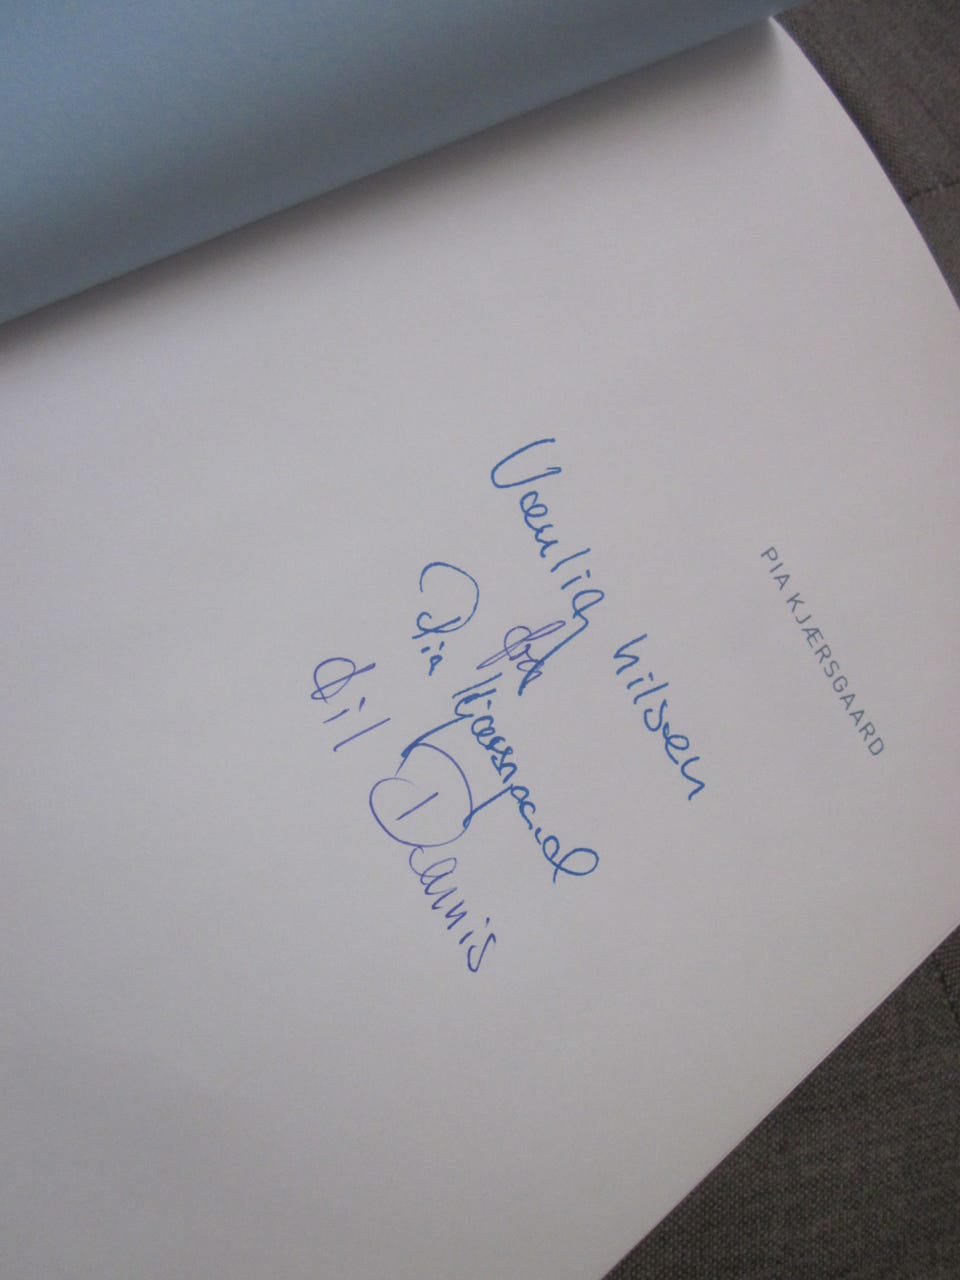 PIA KJÆRSGAARD
Venlig hilsen
fra
Pia Kjærsgaard
til Dennis